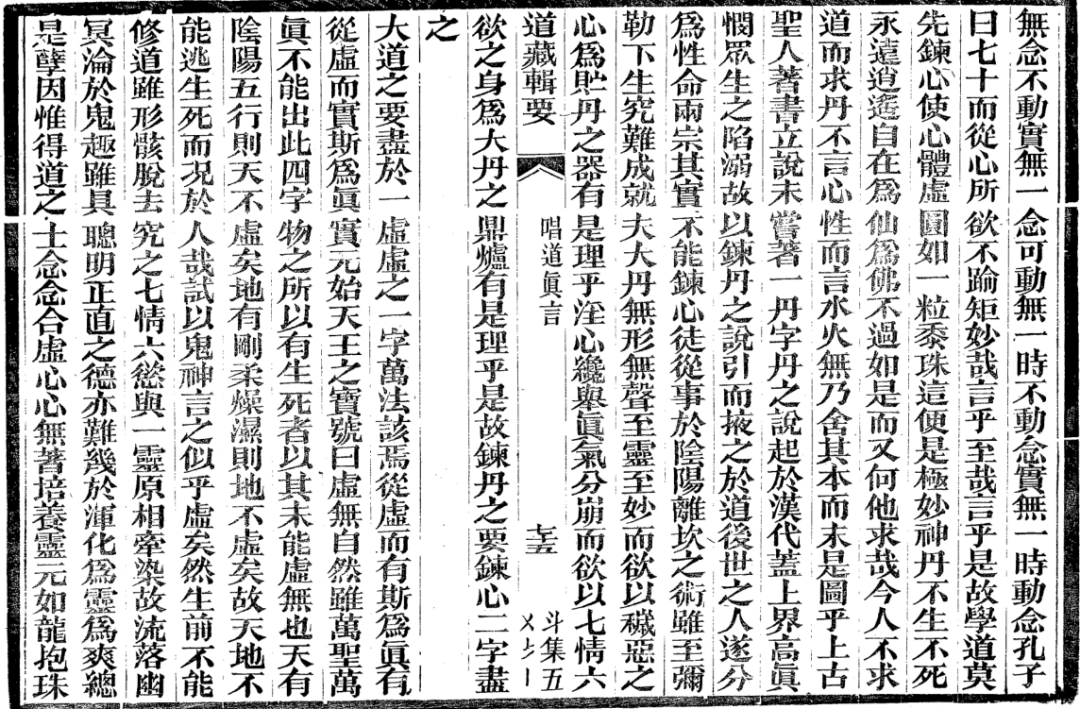 無念不動實無一念可動無一時不動念實無一時動念孔子
曰七十而從心所欲不踰矩妙哉言乎至哉言乎是故學道莫
先鍊心使心體虛圓如一粒黍珠這便是極妙神丹不生不死
永遠逍遙自在爲仙爲佛不過如是而又何他求哉今人不求
道而求丹不言心性而言水火無乃舍其本而末是圖乎上古
聖人著書立說未嘗著一丹字丹之說起於漢代蓋上界高眞
憫眾生之陷溺故以鍊丹之說引而掖之於道後世之人遂分
爲性命兩宗其實不能鍊心徒從事於陰陽離坎之術雖至彌
勒下生究難成就夫大丹無形無聲至靈至妙而欲以穢惡之
心爲貯丹之器有是理乎淫心纔舉眞氣分崩而欲以七情六
道藏輯要
唱道眞言
七五
斗集五
欲之身爲大丹之鼎爐有是理乎是故鍊丹之要鍊心二字盡
之
大道之要盡於一虛虛之一字萬法該焉從虛而有斯爲眞有
從虛而實斯爲眞實元始天王之寶號曰虛無自然雖萬聖萬
眞不能出此四字物之所以有生死者以其未能虛無也天有
陰陽五行則天不虛矣地有剛柔燥濕則地不虛矣故天地不
能逃生死而况於人哉試以鬼神言之似乎虛矣然生前不能
修道雖形骸脫去究之七情六慾與一靈原相牽染故流落幽
冥淪於鬼趣雖具聰明正直之德亦難幾於渾化爲靈爲爽總
是孽因惟得道之士念念合虛心心無著培養靈元如龍抱珠